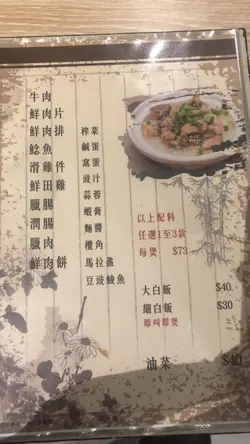 牛肉
鮮肉片
鮮肉排
鯰魚
滑雞件
鮮田雞
臘腸
潤腸
臘肉
鮮肉餅
榨菜
鹹蛋
窩蛋
豉汁
蒜蓉
蝦膏
麵醬
欖角
馬拉盞
豆豉鯪魚
以上配料
任選1至3款
每煲 $73
大白飯 $40
細白飯 $30
即叫即煲
油菜 $40